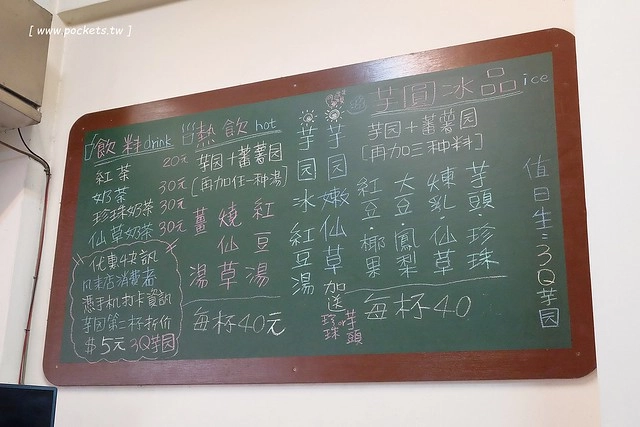 [ www.pockets.tw ]
飲料drink
紅茶 20元
奶茶 30元
珍珠奶茶 30元
仙草奶茶 30元
优惠4夬訊
凡來店消費者
憑手机打卡資訊
芋园第二杯折价
$5元3Q芋园
熱飲hot
芋园+蕃薯园
[再加任一种湯]
薑湯
燒仙草
紅豆湯
每杯40元
芋园冰
紅豆湯
芋园嫩仙草加送
珍珠or芋頭
芋圓冰品ice
芋园+蕃薯园
[再加三种料]
紅豆.椰果
大豆.鳳梨
煉乳.仙草
芋頭.珍珠
每杯40
值日生:3Q芋园